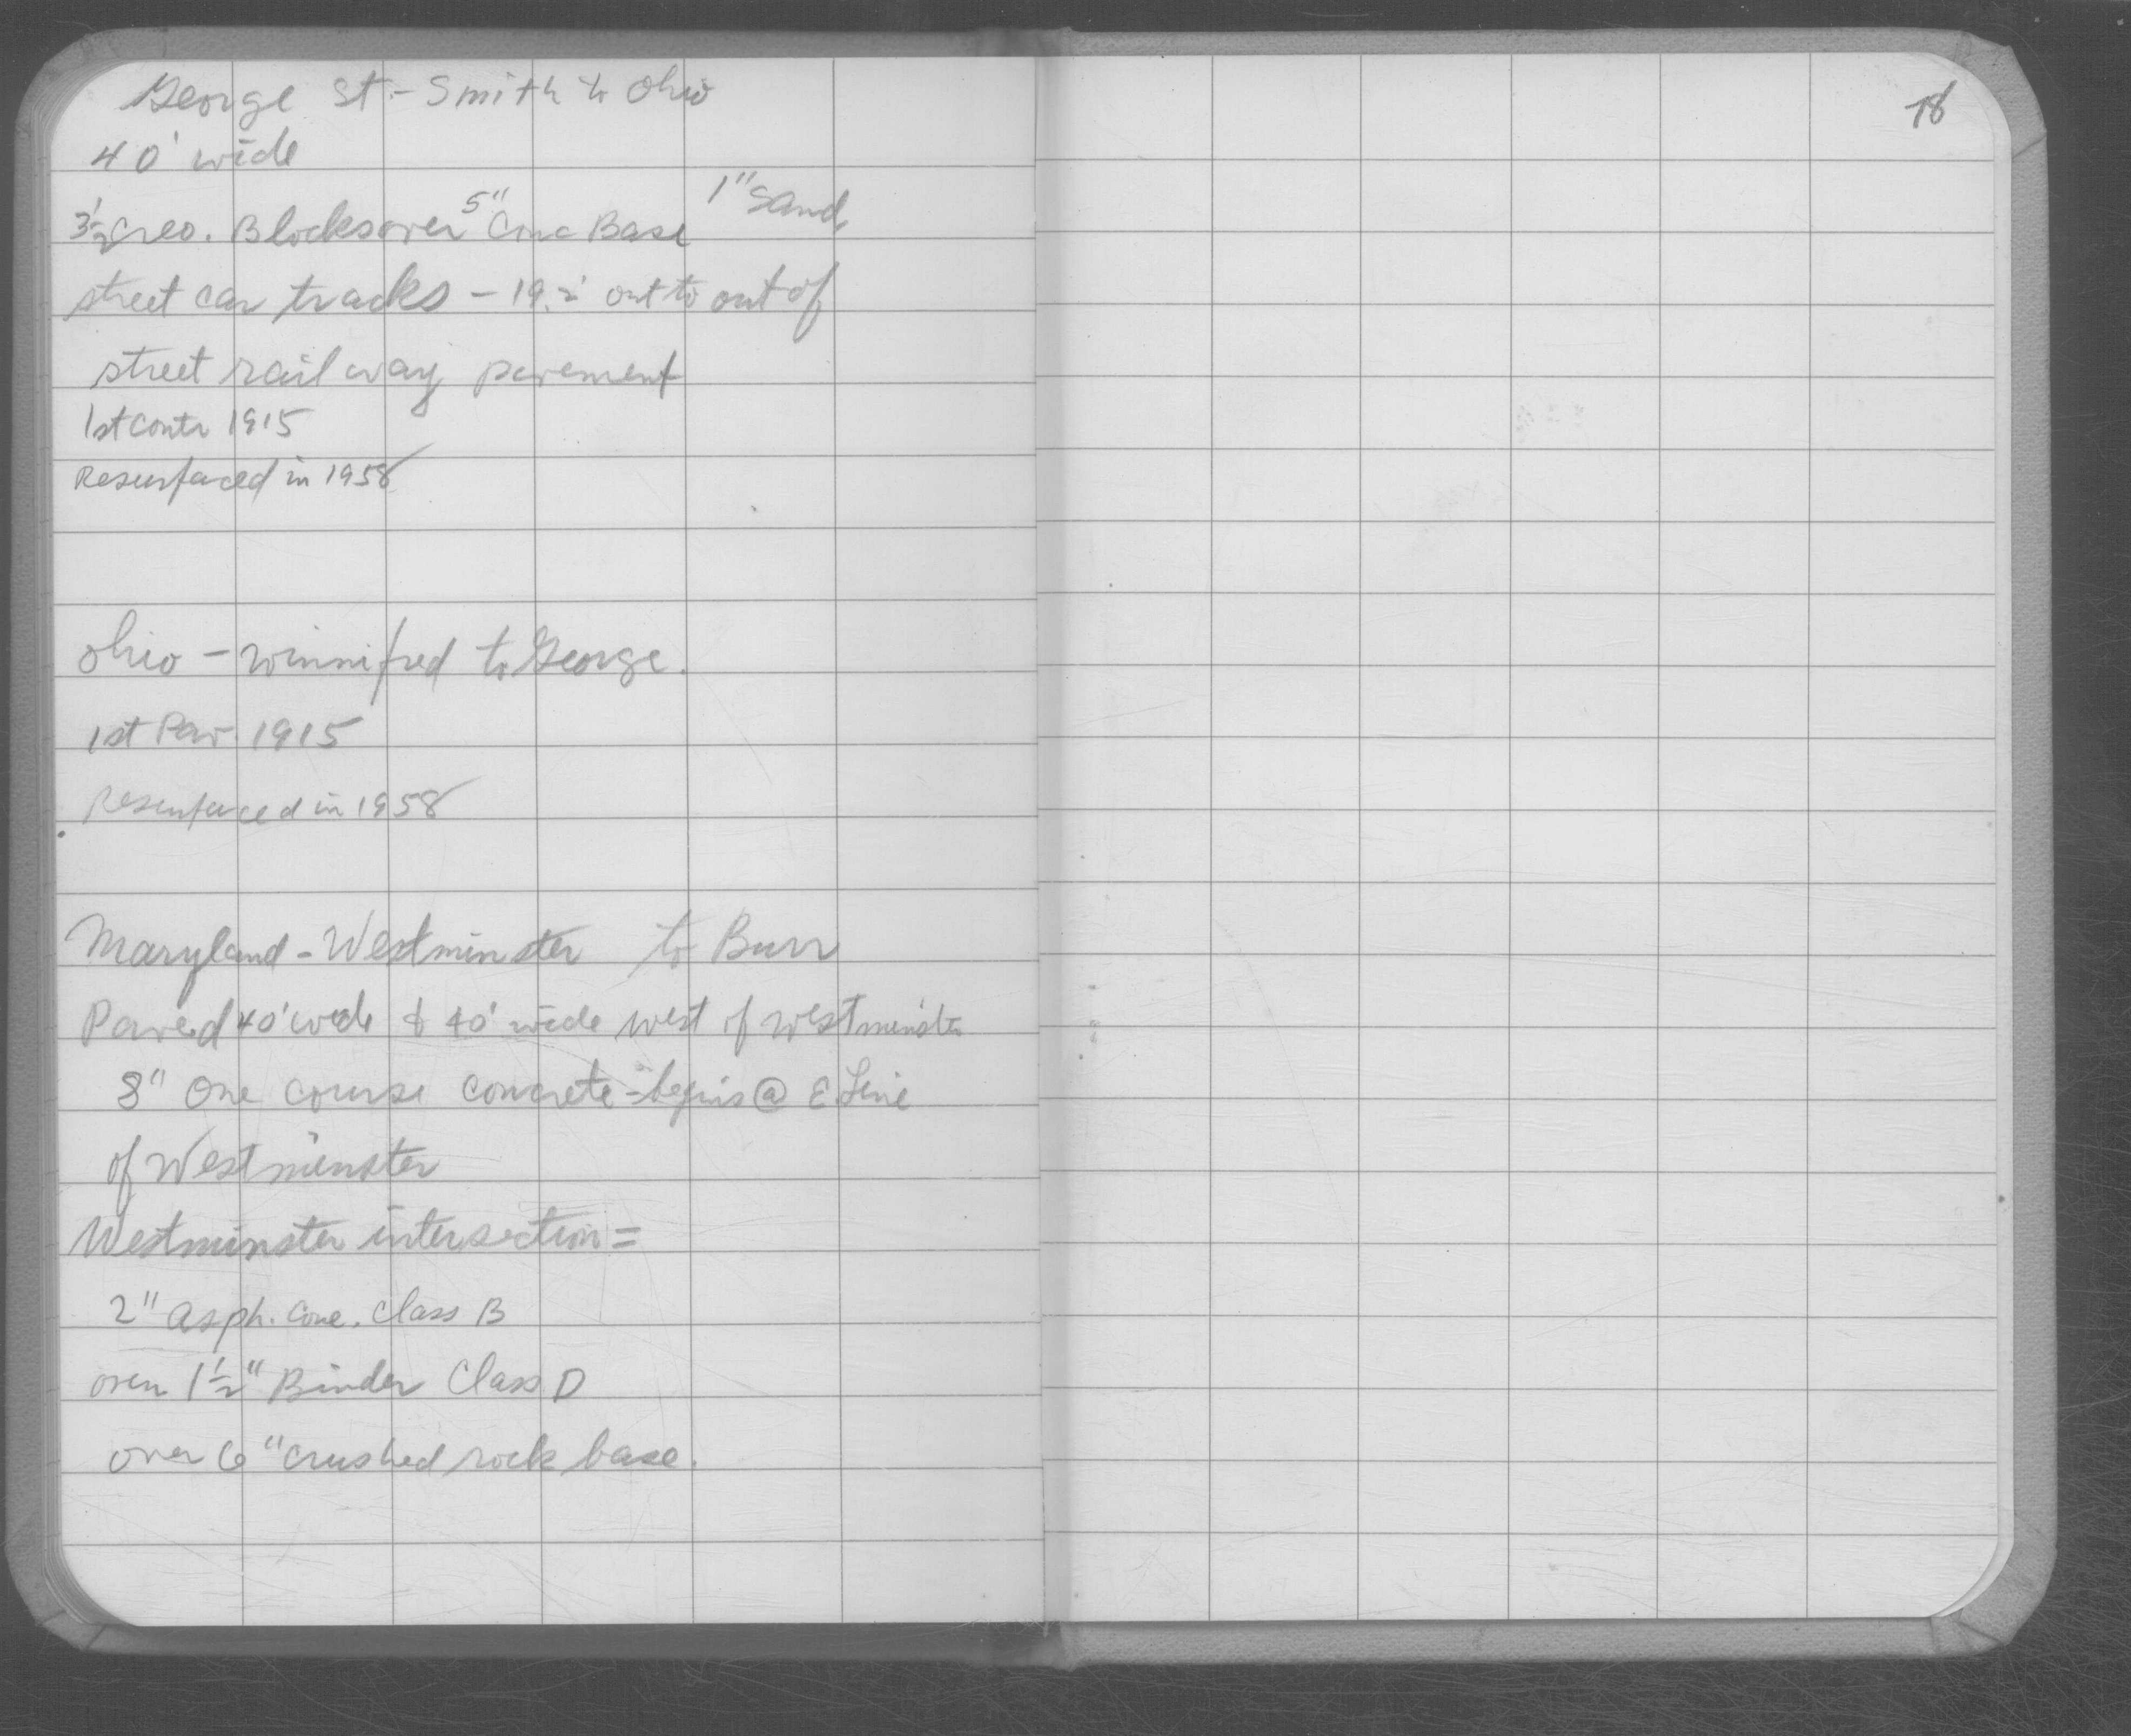 George St.- Smith to Ohio
40' wide
3½ Creo. Blocks over 5" Conc Base 1" Sand
street car tracks - 19.2' out to out of
street railway pavement
1st Contr 1915
Resurfaced in 1958
Ohio - Winnifred to George.
1st Pav. 1915
Resurfaced in 1958
Maryland - Westminster to Burr
Paved 40' wide & 40' wide west of Westminster
8" One course concrete - begins @ E. Line
of Westminster
Westminster intersection =
2" Asph. Conc. Class B
over 1½" Binder Class D
over 6" crushed rock base.
78